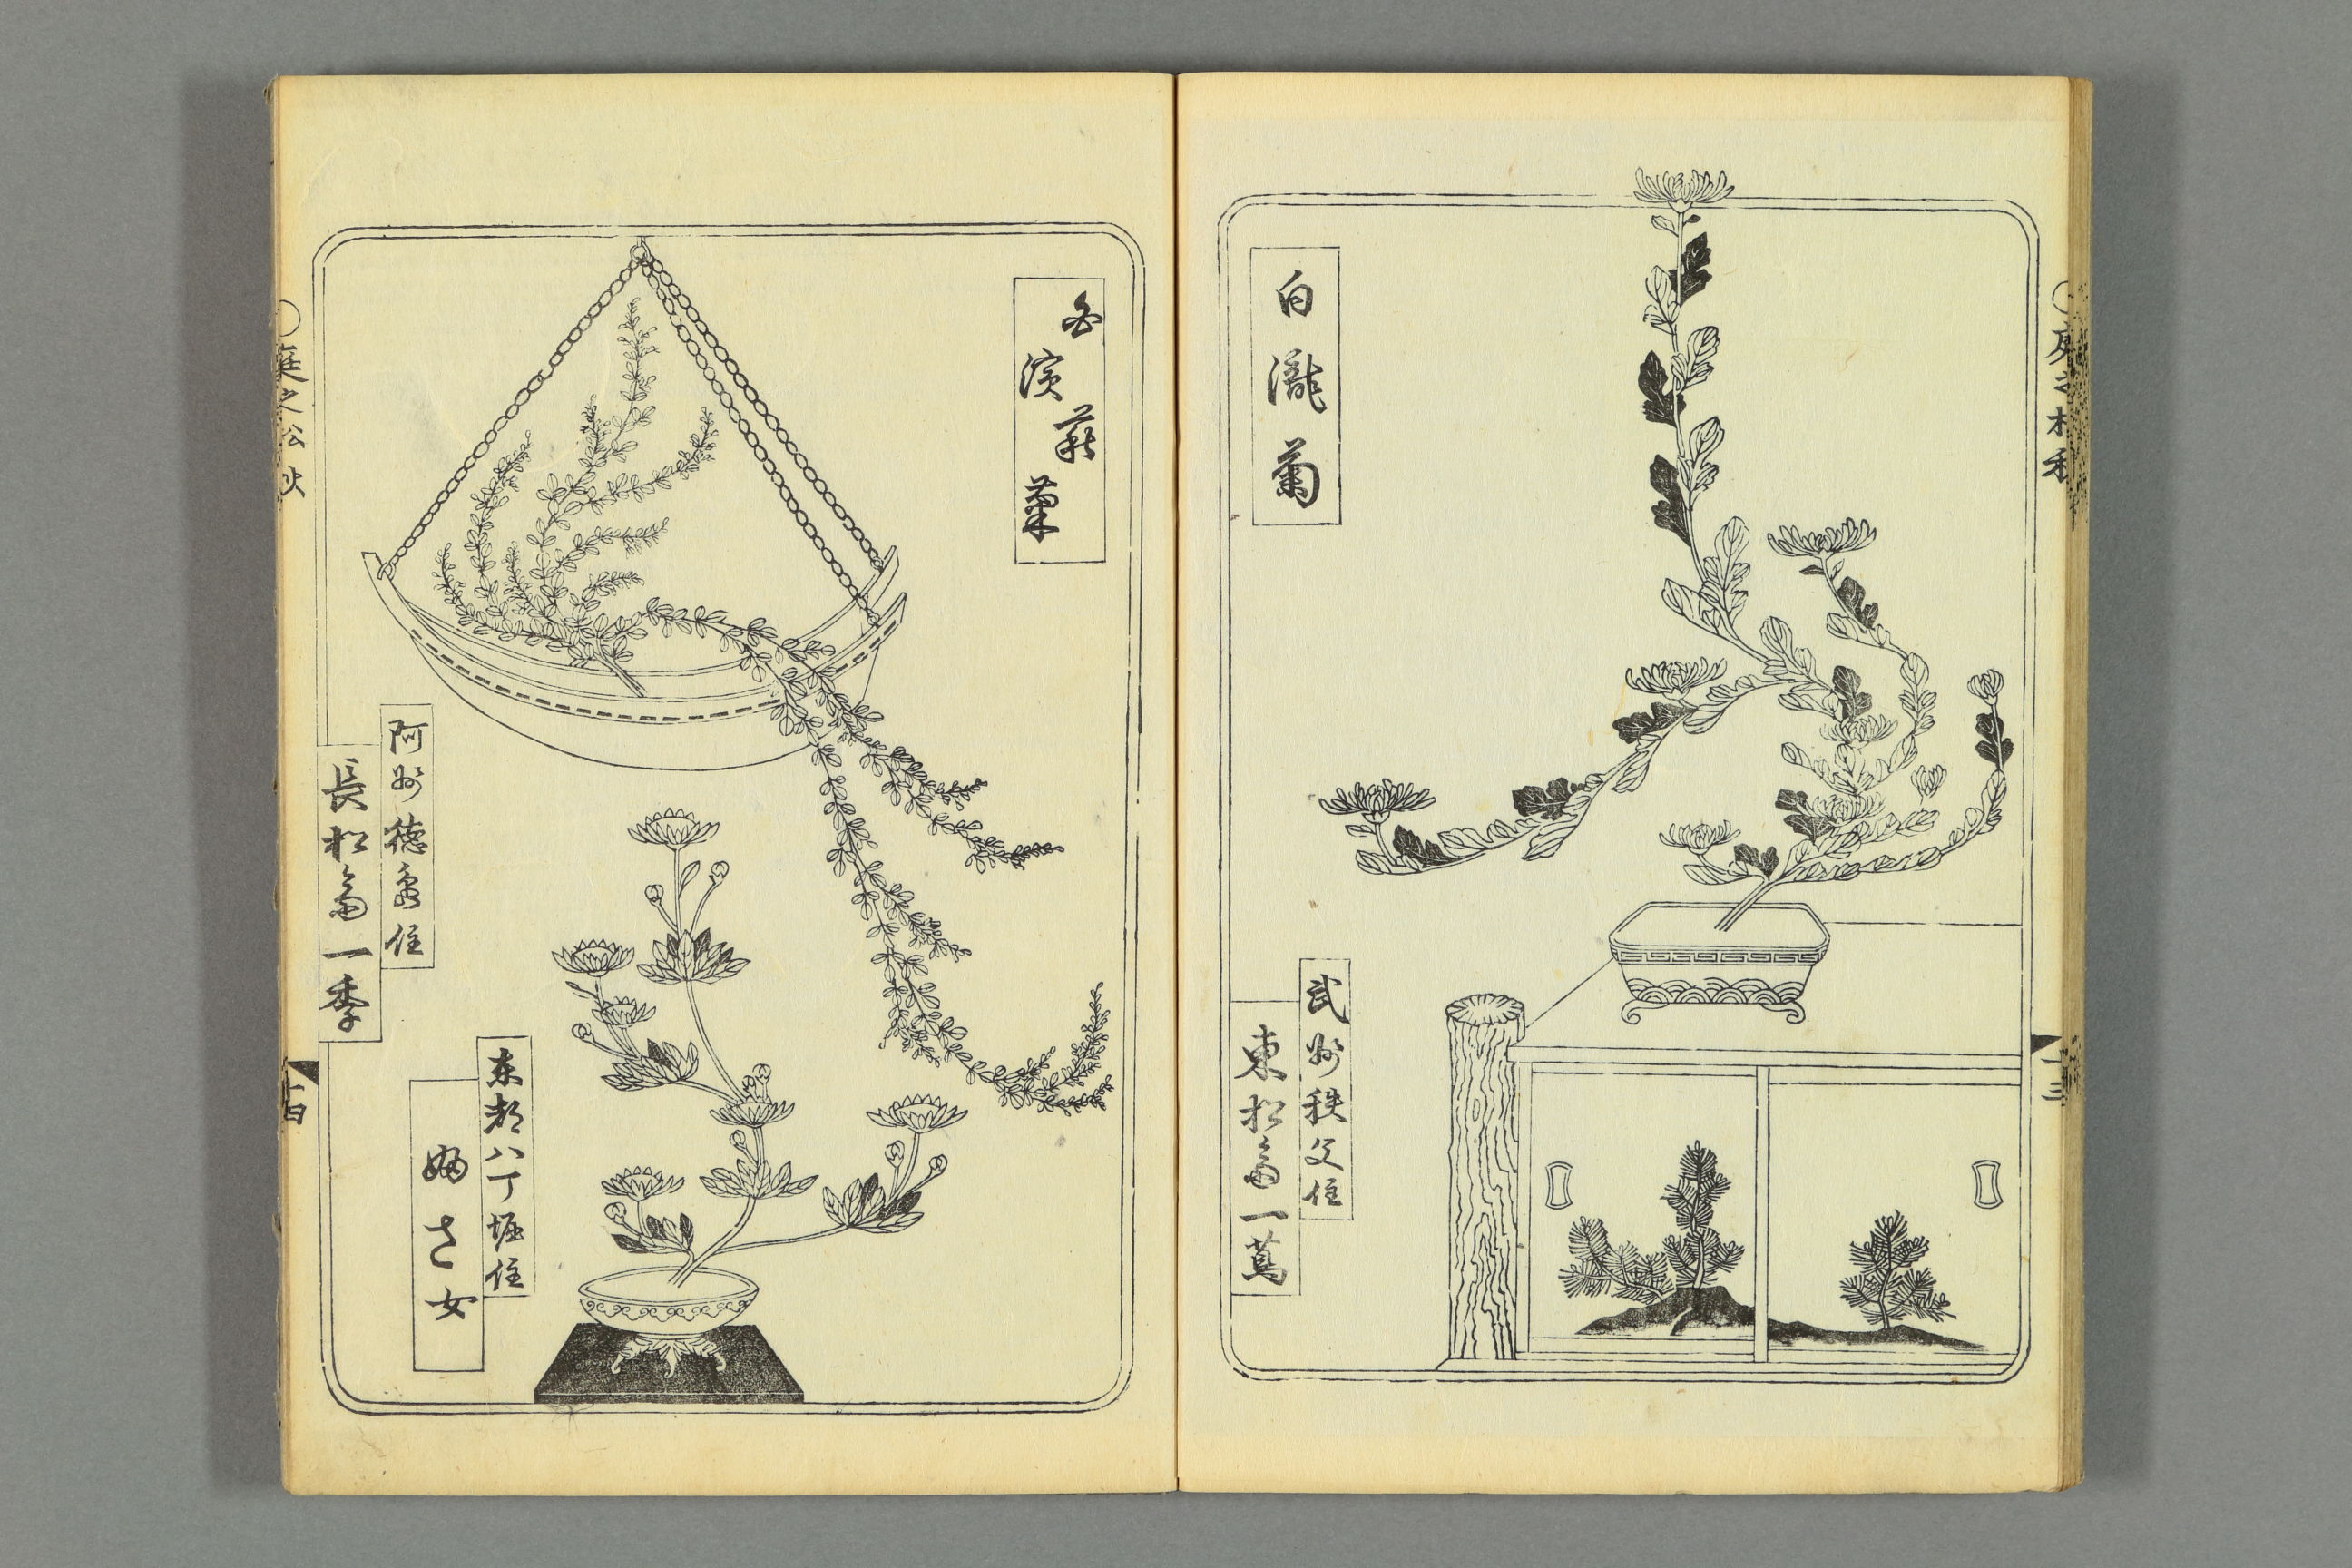 庭之松 秋
十三
白瀧菊
武州秩父住
東松斎一蔦
萩
濱菊
阿州徳島住
長松斎一季
东都八丁堀住
さ女
庭之松 秋
十四